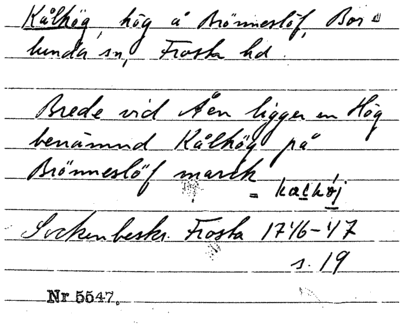 Kålhög, hög å Brönneslöf, Bor-
lunda sn, Frosta hd.
Brede vid Åen ligger en Hög
benämnd Kålhög på
Brönneslöf marck
= kalhöj
Sockenbeskr. Frosta 1746-47
s. 19
Nr 5547.